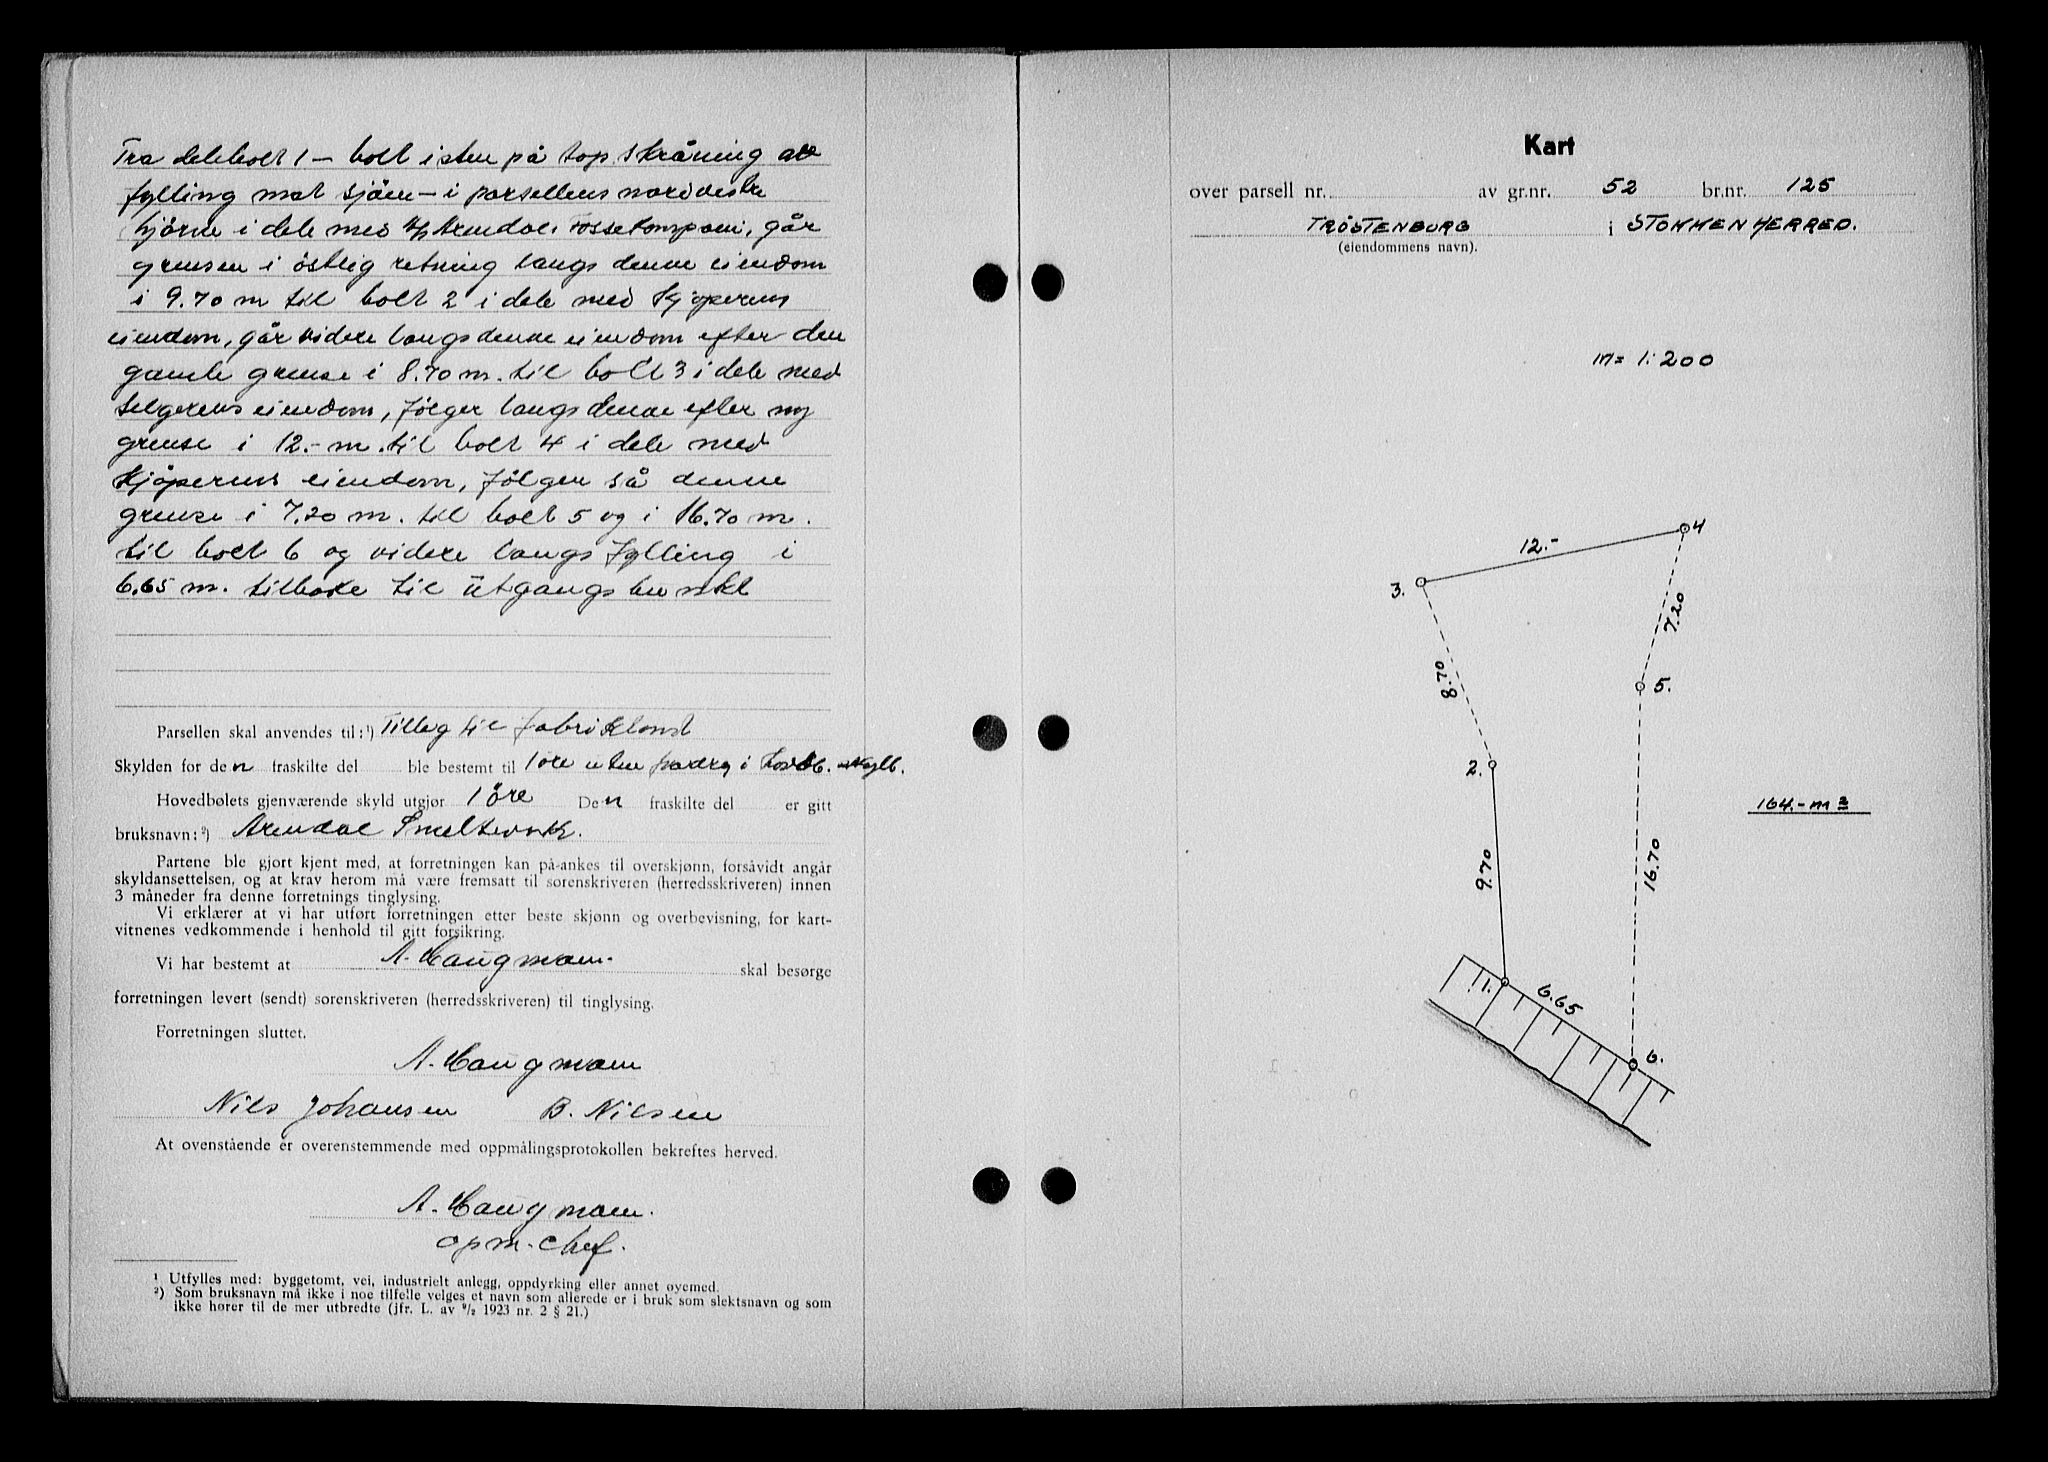 Fra delebolt 1 – bolt i sten på top skråning av
fylling mot sjöen – i parsellens nordvestre
hjörne i dele med A/S Arendals Fossekompani, går
grensen i östlig retning langs denne eiendom
i 9.70 m til bolt 2 i dele med Kjöperens
eiendom, går videre langs denne eiendom efter den
gamle grense i 8.70 m. til bolt 3 i dele med
selgerens eiendom, fölger langs denne efter ny
grense i 12.- m. til bolt 4 i dele med
Kjöperens eiendom, fölger så denne
grense i 7.20 m. til bolt 5 og i 16.70 m.
til bolt 6 og videre langs fylling i
6.65 m. tilbake til ütgangspunkt
Parsellen skal anvendes til:¹) Tilleg til fabriktomt
Skylden for den fraskilte del ble bestemt til 1 öre uten fradrag i
Hovedbølets gjenværende skyld utgjør 1 öre Den fraskilte del er gitt
bruksnavn:²) Arendal Smelteverk.
Partene ble gjort kjent med, at forretningen kan på-ankes til overskjønn, forsåvidt angår
skyldansettelsen, og at krav herom må være fremsatt til sorenskriveren (herredsskriveren) innen
3 måneder fra denne forretnings tinglysing.
Vi erklærer at vi har utført forretningen etter beste skjønn og overbevisning, for kart-
vitnenes vedkommende i henhold til gitt forsikring.
Vi har bestemt at A. Haugmoen. skal besørge
forretningen levert (sendt) sorenskriveren (herredsskriveren) til tinglysing.
Forretningen sluttet.
A. Haugmoen
Nils Johansen B. Nilsen
At ovenstående er overenstemmende med oppmålingsprotokollen bekreftes herved.
A. Haugmoen.
opm. chef.
¹ Utfylles med: byggetomt, vei, industrielt anlegg, oppdyrking eller annet øyemed.
²) Som bruksnavn må ikke i noe tilfelle velges et navn som allerede er i bruk som slektsnavn og som
ikke hører til de mer utbredte (jfr. L. av ⁹/₂ 1923 nr. 2 § 21.)
Kart
over parsell nr. av gr.nr. 52 br.nr. 125
TRÖSTENBURG i STOKKEN HERRED.
(eiendommens navn).
m= 1:200
4
12.-
3.
7.20
8.70
5.
2.
164.- m²
9.70
16.70
1.
6.65
6.